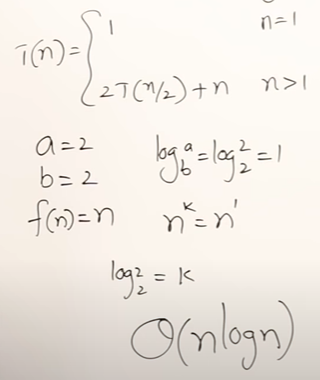 T(n) = { 1 n=1
2T(n/2) + n n>1
a = 2 log_b^a = log_2^2 = 1
b = 2
f(n) = n n^k = n^1
log_2^2 = k
O(n log n)